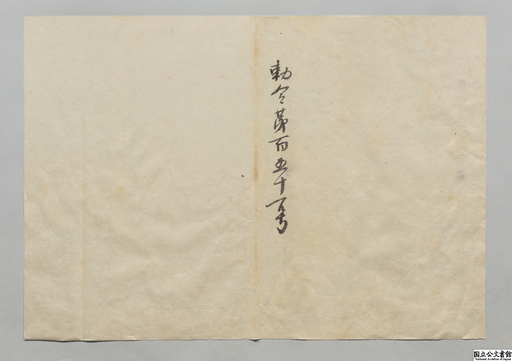 勅令第百五十一号
国立公文書館
National Archives of Japan